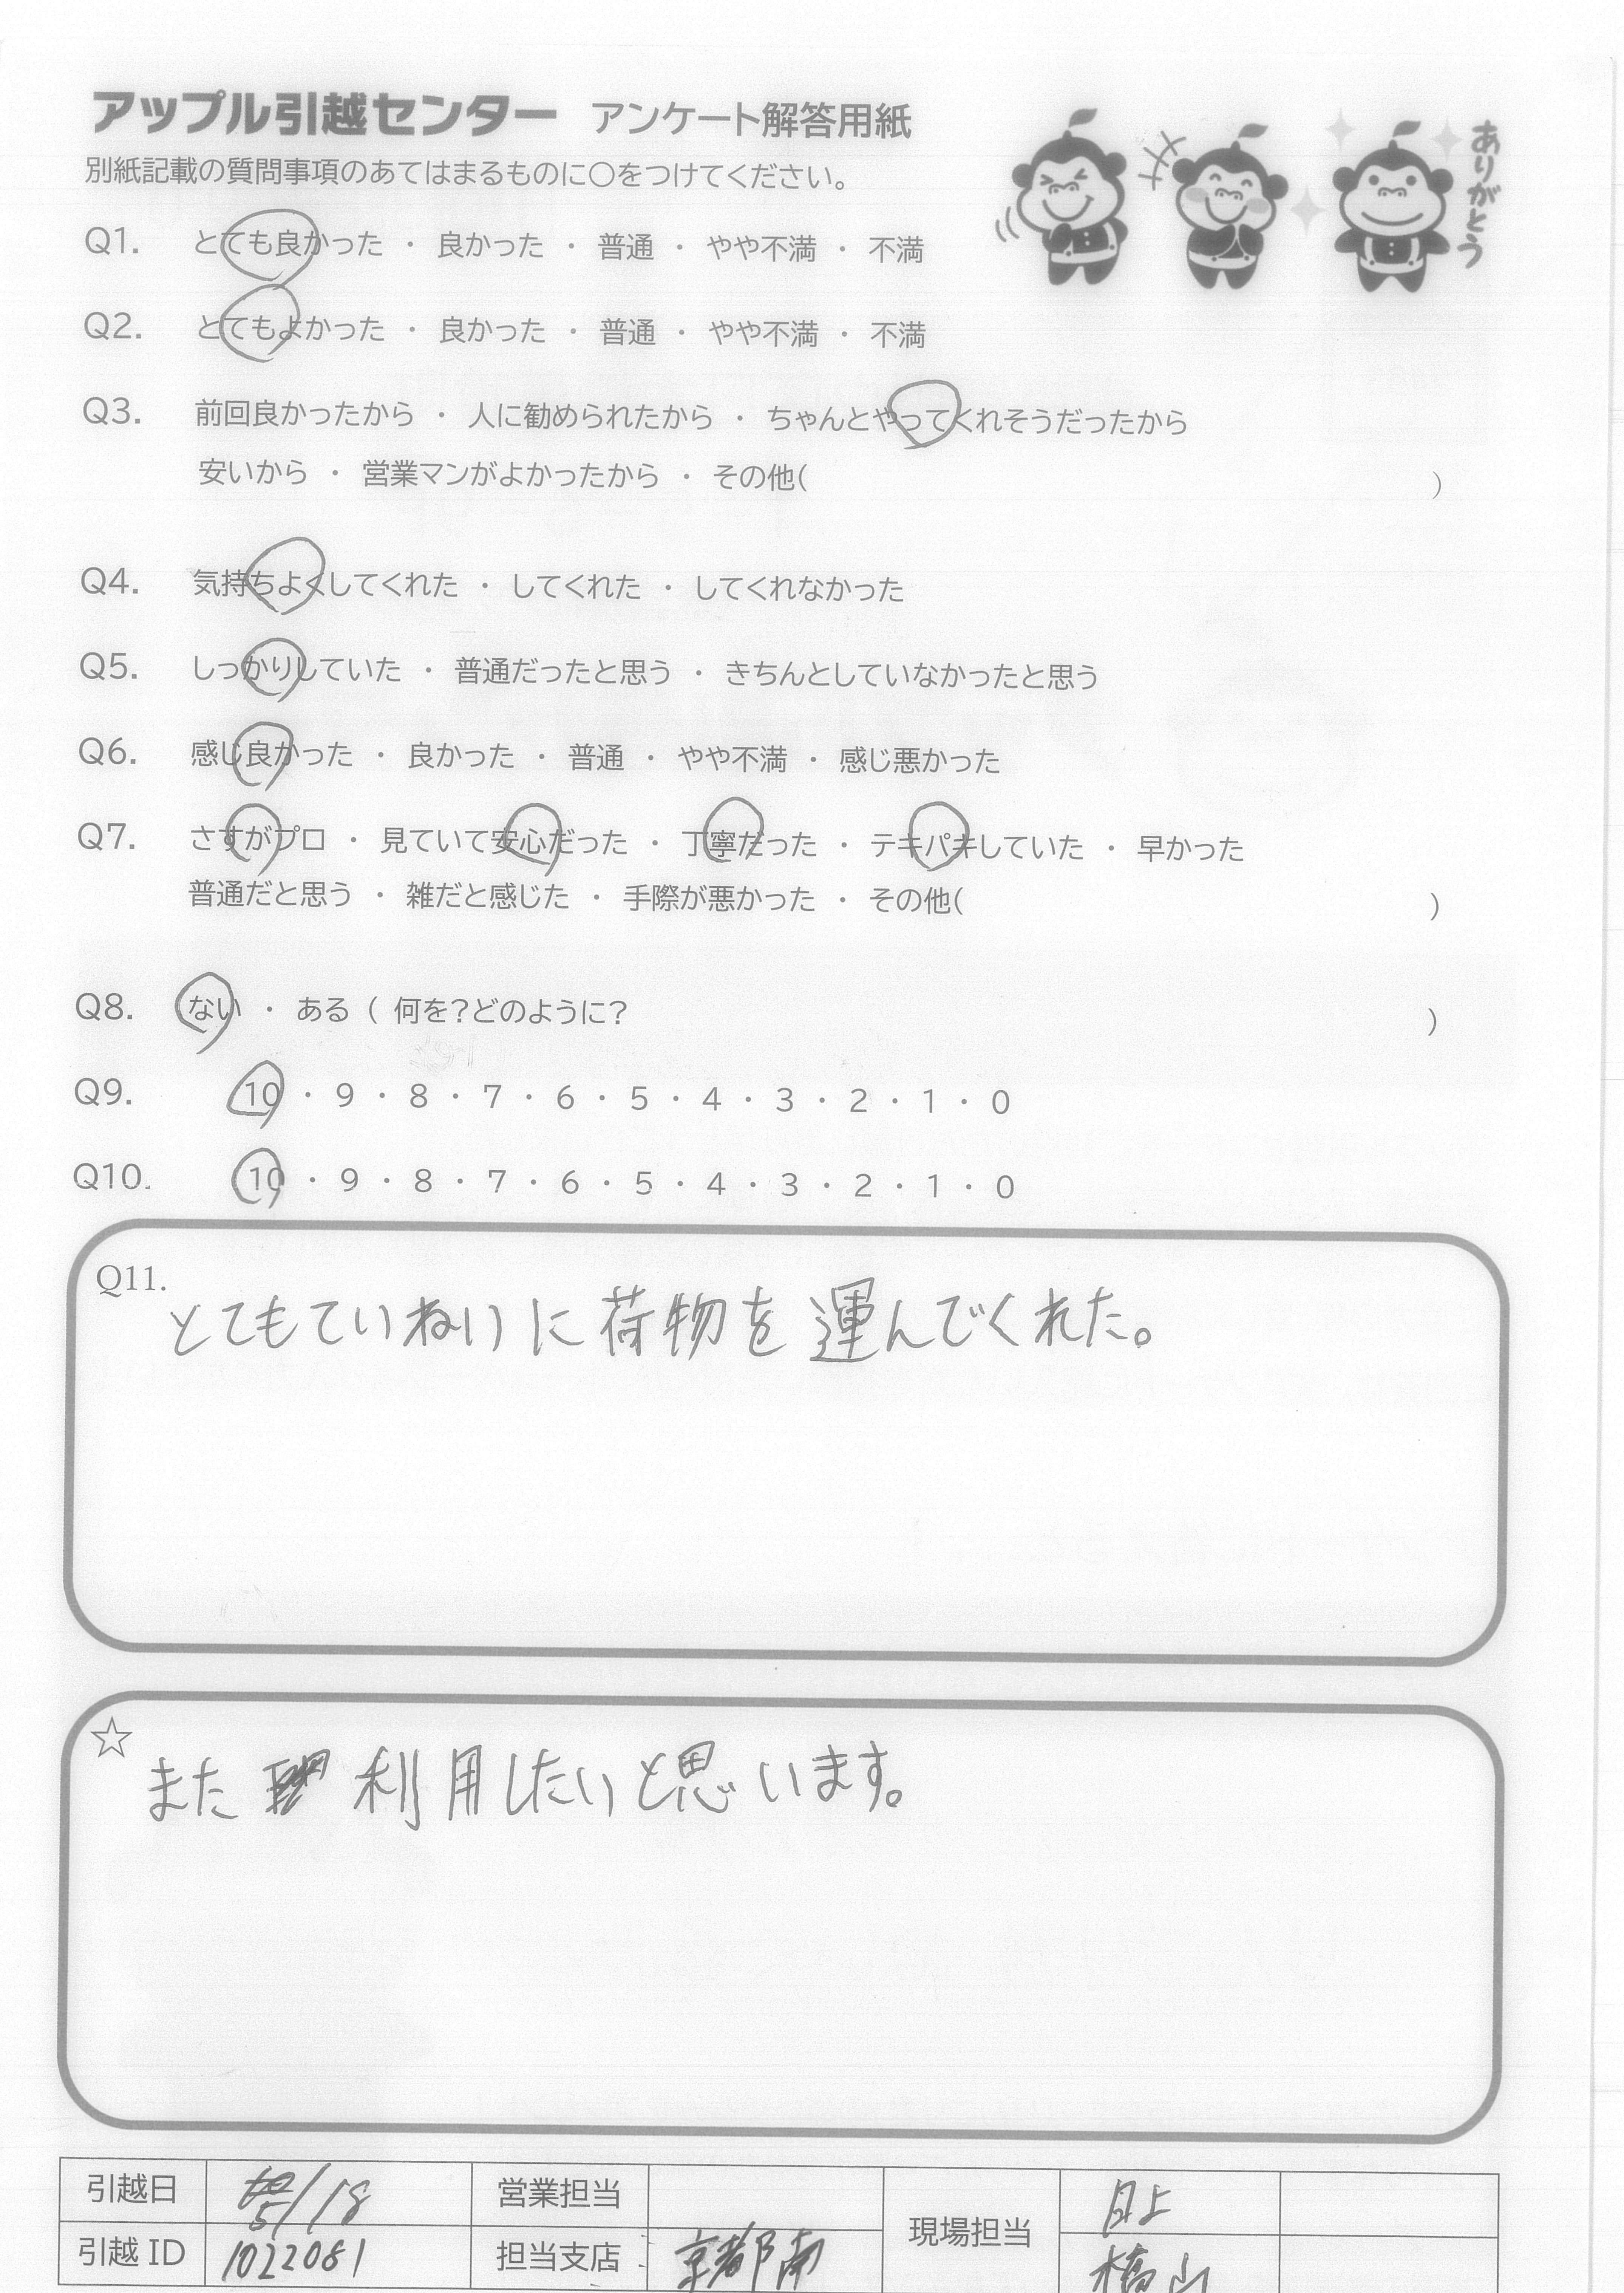 アップル引越センター アンケート解答用紙
別紙記載の質問事項のあてはまるものに○をつけてください。
ありがとう
Q1. とても良かった ・ 良かった ・ 普通 ・ やや不満 ・ 不満
Q2. とてもよかった ・ 良かった ・ 普通 ・ やや不満 ・ 不満
Q3. 前回良かったから ・ 人に勧められたから ・ ちゃんとやってくれそうだったから
安いから ・ 営業マンがよかったから ・ その他( )
Q4. 気持ちよくしてくれた ・ してくれた ・ してくれなかった
Q5. しっかりしていた ・ 普通だったと思う ・ きちんとしていなかったと思う
Q6. 感じ良かった ・ 良かった ・ 普通 ・ やや不満 ・ 感じ悪かった
Q7. さすがプロ ・ 見ていて安心だった ・ 丁寧だった ・ テキパキしていた ・ 早かった
普通だと思う ・ 雑だと感じた ・ 手際が悪かった ・ その他( )
Q8. ない ・ ある ( 何を?どのように? )
Q9. 10 ・ 9 ・ 8 ・ 7 ・ 6 ・ 5 ・ 4 ・ 3 ・ 2 ・ 1 ・ 0
Q10. 10 ・ 9 ・ 8 ・ 7 ・ 6 ・ 5 ・ 4 ・ 3 ・ 2 ・ 1 ・ 0
Q11.
とてもていねいに荷物を運んでくれた。
☆
また 利用したいと思います。
引越日 5/18 営業担当 現場担当
引越 ID 1022081 担当支店 京都南